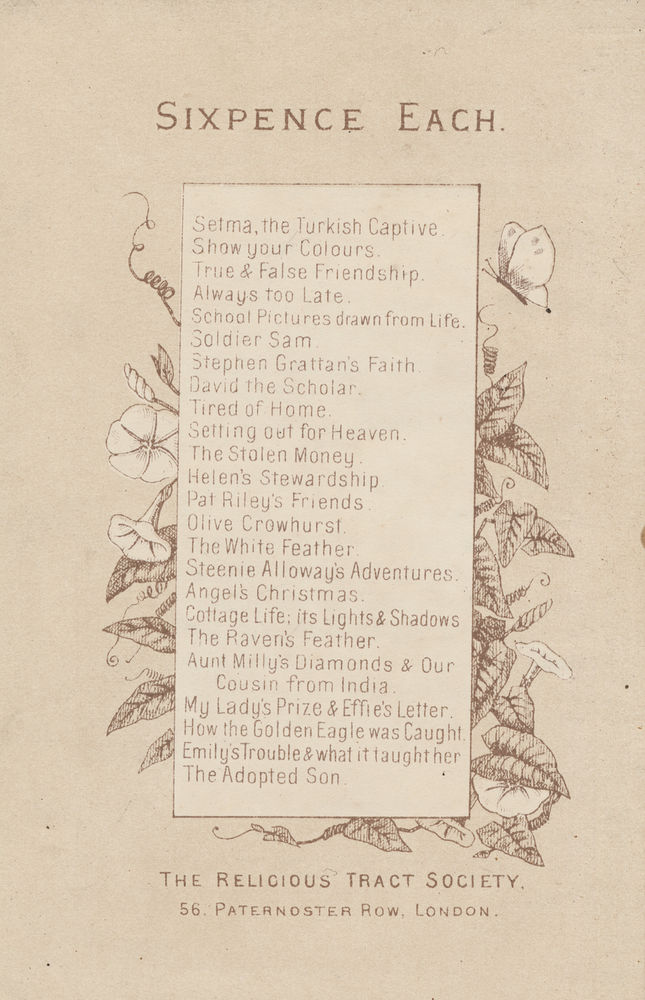 SIXPENCE EACH.
Selma, the Turkish Captive.
Show your Colours.
True & False Friendship.
Always too Late.
School Pictures drawn from Life.
Soldier Sam.
Stephen Grattan's Faith.
David the Scholar.
Tired of Home.
Setting out for Heaven.
The Stolen Money.
Helen's Stewardship.
Pat Riley's Friends.
Olive Crowhurst.
The White Feather.
Steenie Alloway's Adventures.
Angel's Christmas.
Cottage Life; its Lights & Shadows
The Raven's Feather.
Aunt Milly's Diamonds & Our
Cousin from India.
My Lady's Prize & Effie's Letter.
How the Golden Eagle was Caught.
Emily's Trouble & what it taught her
The Adopted Son.
THE RELIGIOUS TRACT SOCIETY.
56. PATERNOSTER ROW, LONDON.